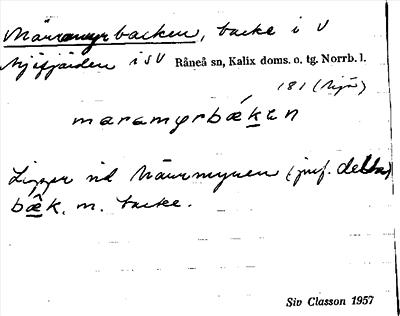 Märramyrbacken, backe i V
Mjöfjärden i SV Råneå sn, Kalix doms. o. tg. Norrb. l.
181 (Mjö)
maramyrbǽken
Ligger vid Märrmyren (jmf. detta)
bæ̂k. m. backe.
Siv Classon 1957